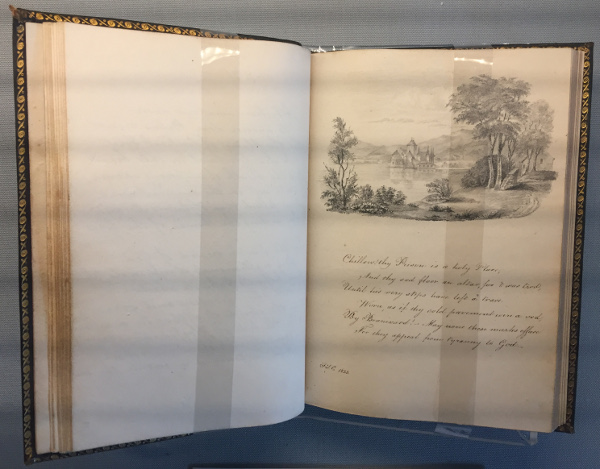 Chillon! thy Prison is a holy Place,
And thy sad floor an altar, for 'twas trod,
Until his very steps have left a trace
Worn, as if thy cold pavement were a sod,
By Bonnivard! - May none those marks efface
For they appeal from tyranny to God. -